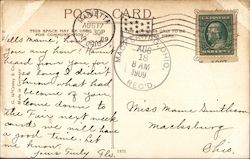 POST CARD
THIS SPACE MAY BE USED FOR COMMUNICATION
Hello Mame, How are
you any how? Havent
heard from you for
so long I didn't
know what had
become of you.
Come down to
the Fair next week
and we will have
a good time. Let
me know.
Yours Truly
AUG 17
AUG
18
8 AM
1909
REC'D.
Miss Mame
Macksburg
Ohio.